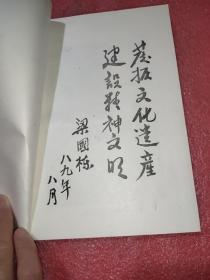 发掘文化遗產
建設精神文明
梁國棟
八九年
八月